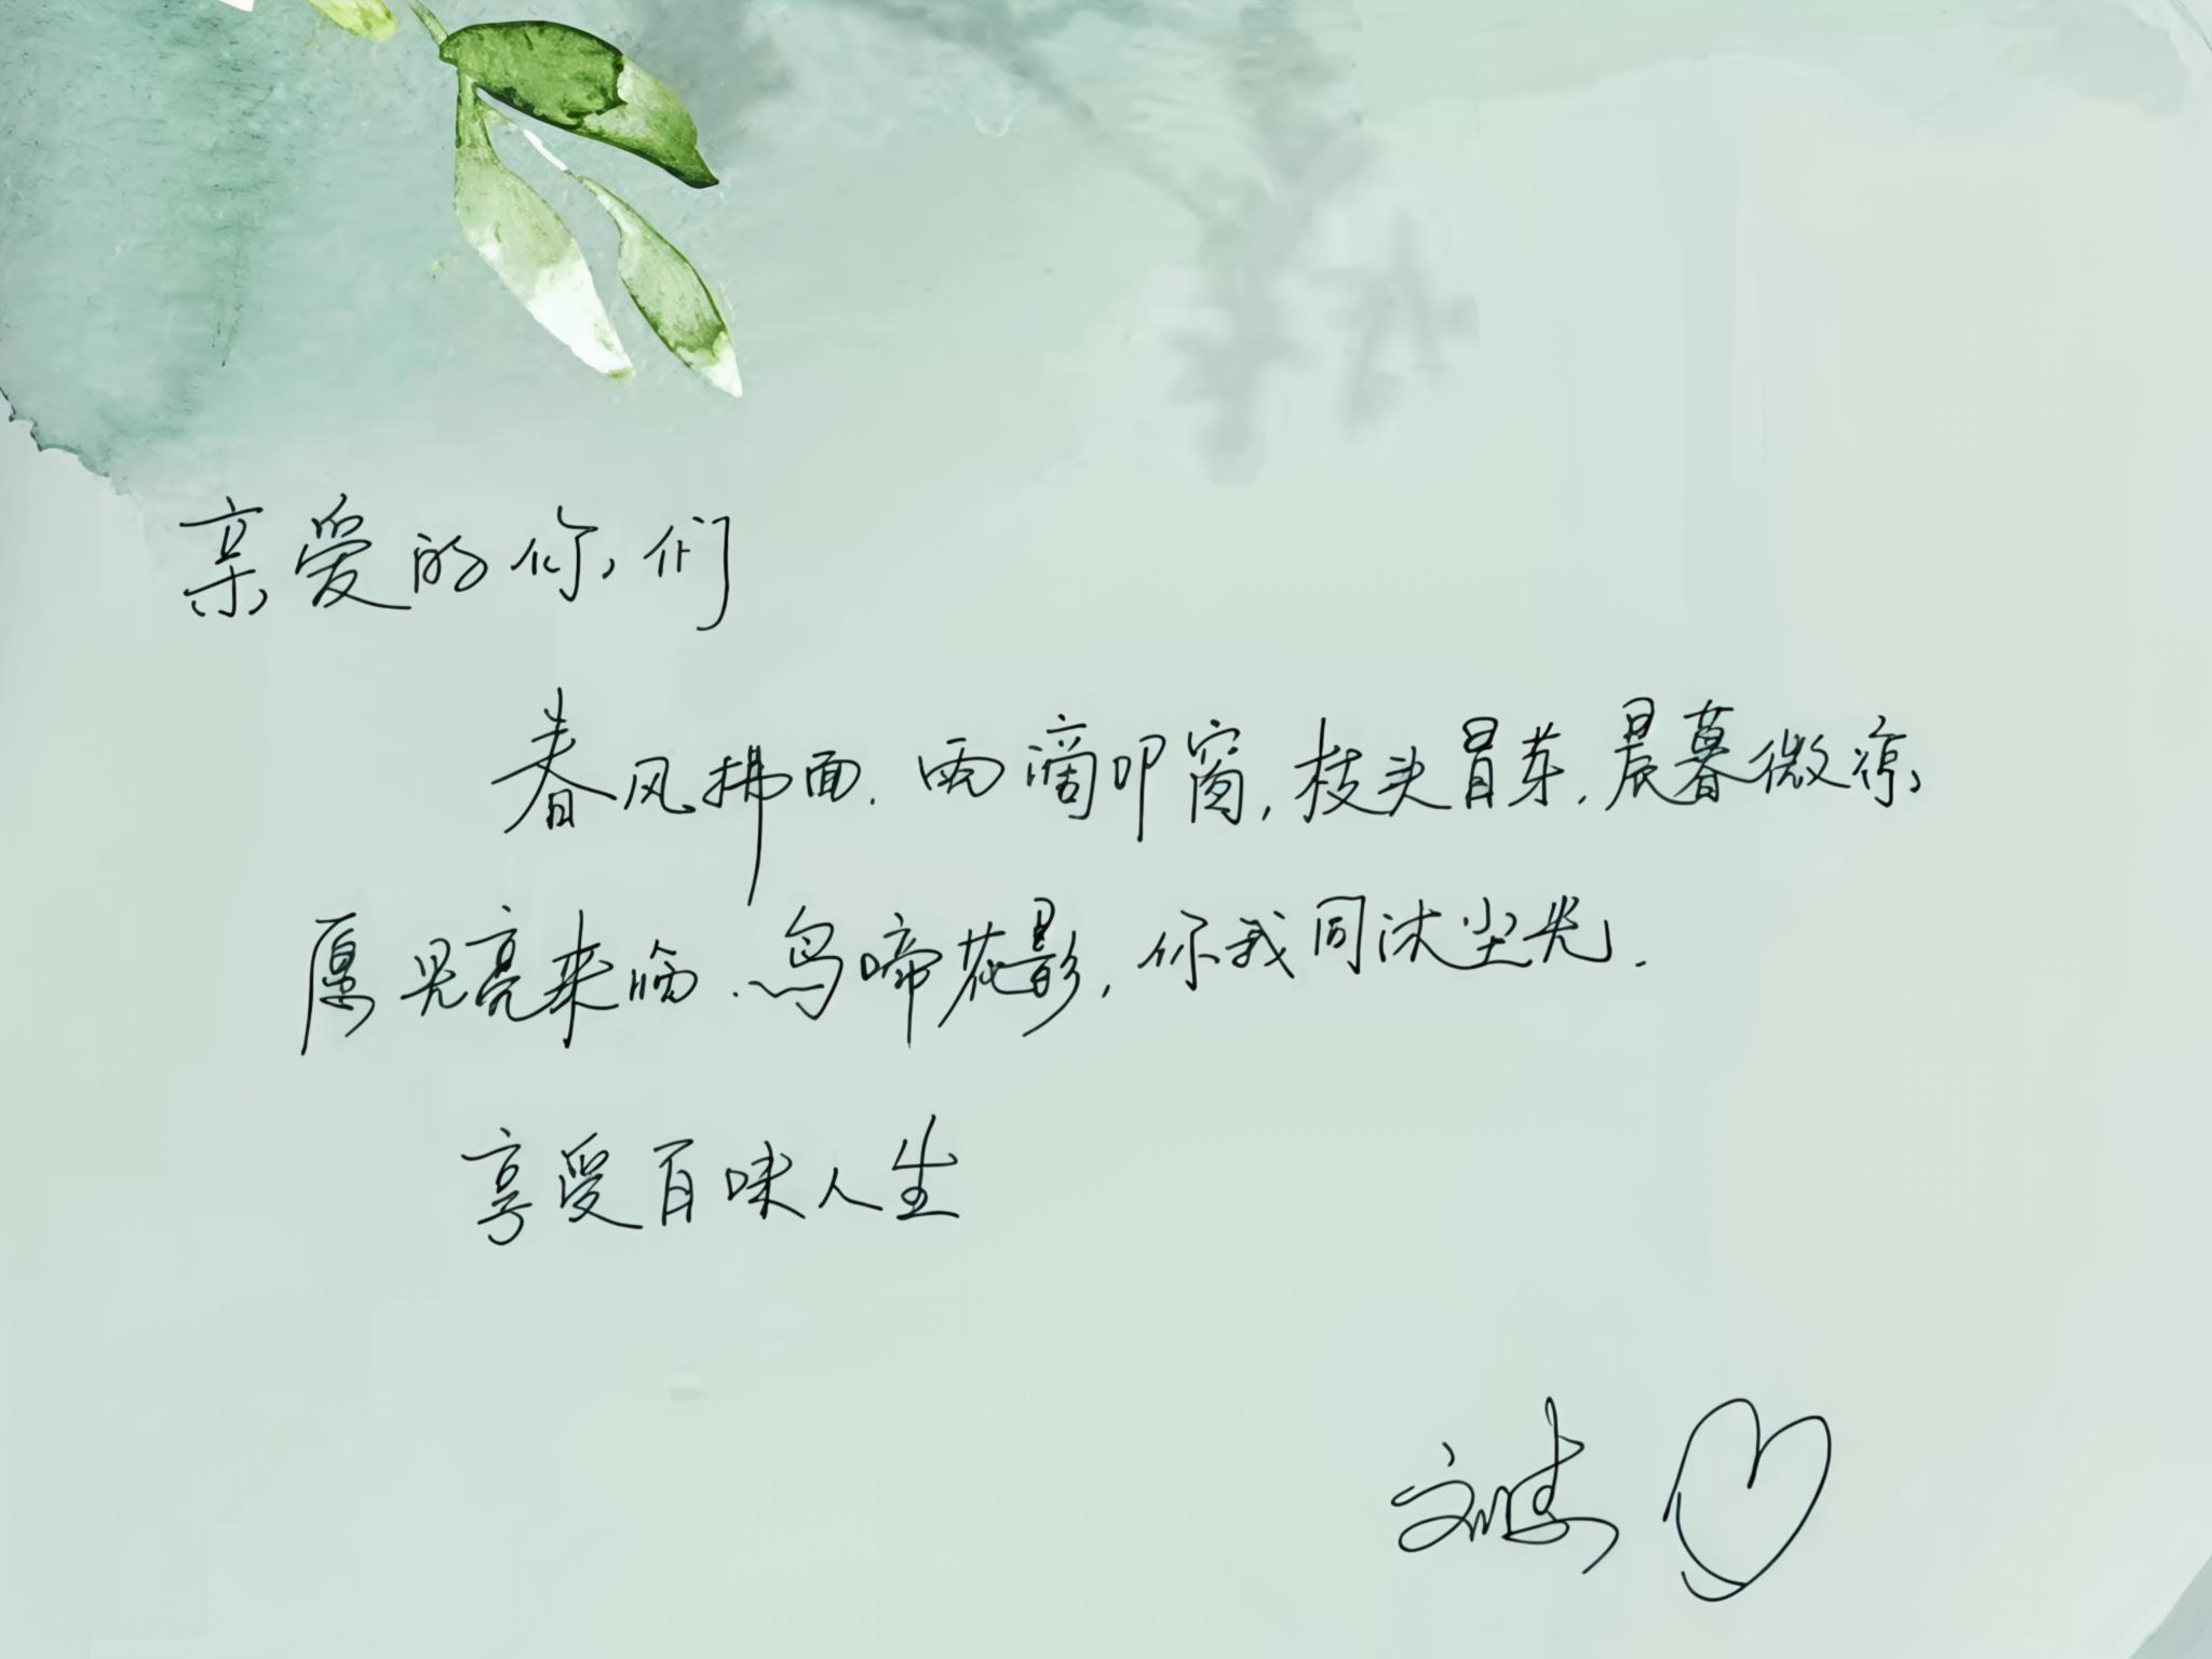 亲爱的你们
春风拂面.雨滴叩窗,枝头冒芽.晨暮微凉,
愿晃亮来临.鸟啼花影,你我同沐尘光.
享受百味人生